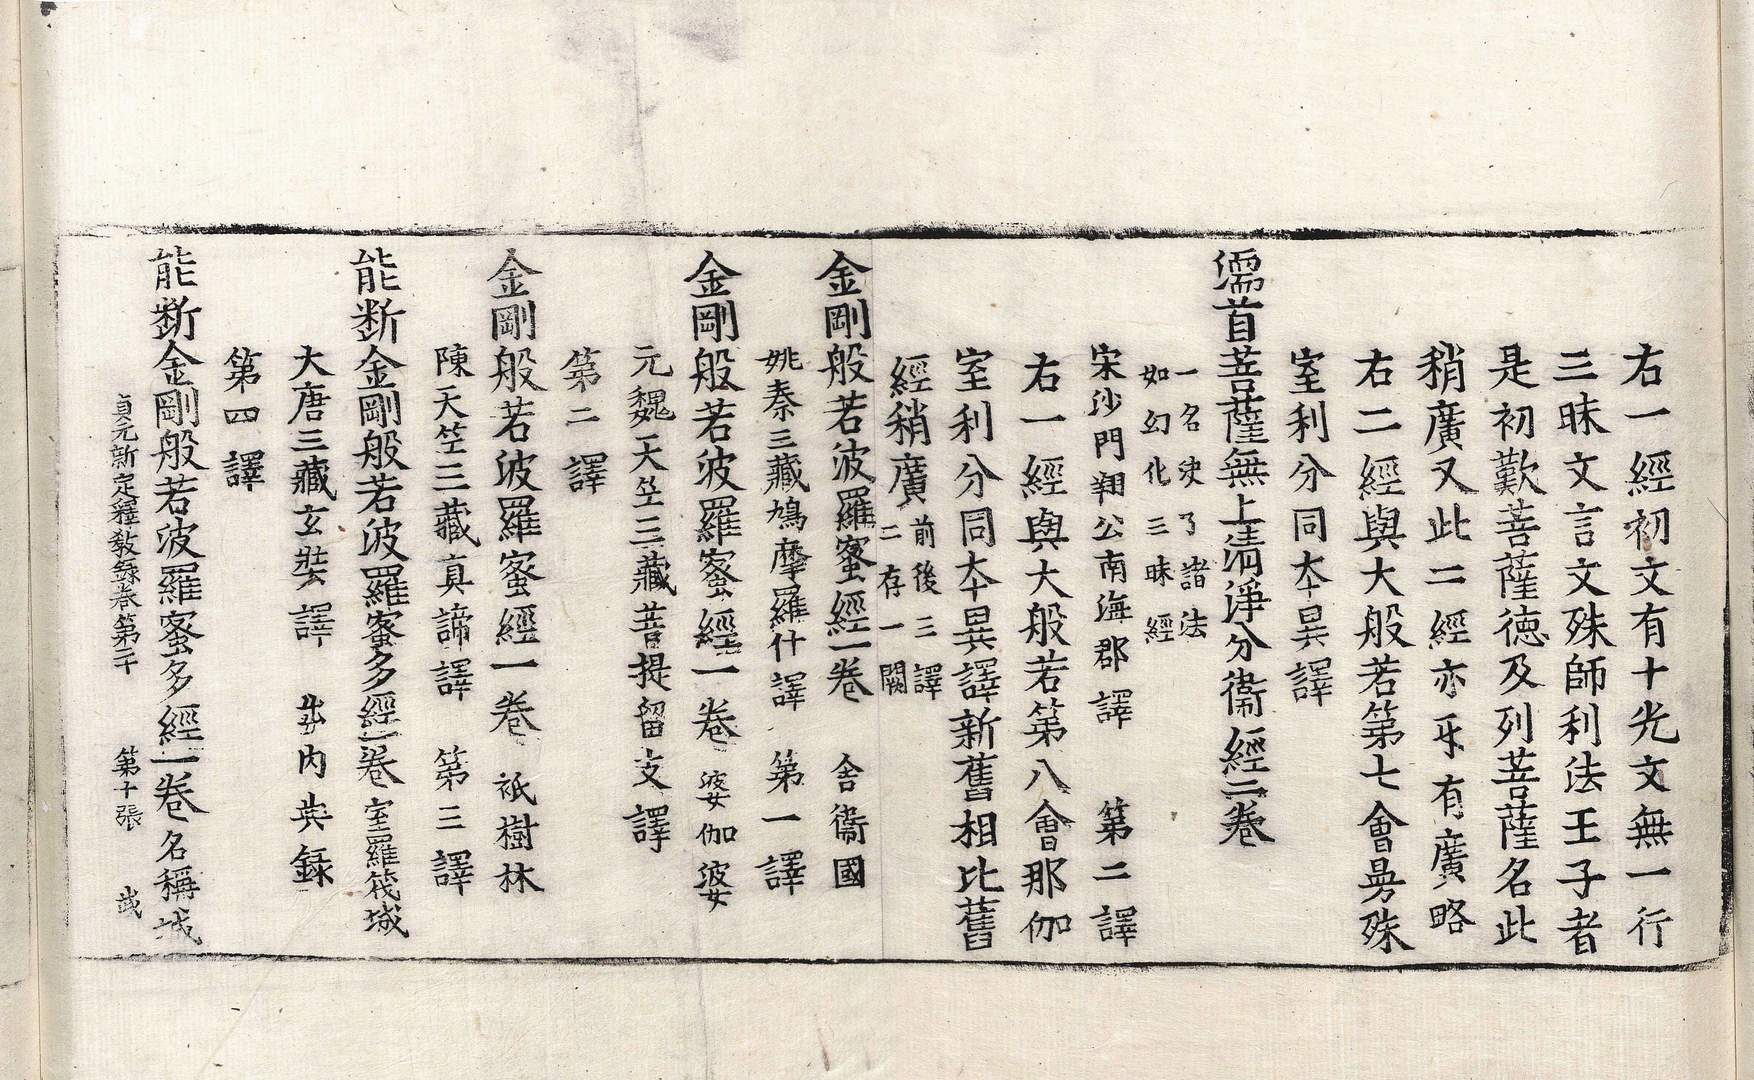 右一經初文有十光文無一行
三昧文言文殊師利法王子者
是初歎菩薩徳及列菩薩名此
稍廣又此二經亦㸦有廣略
右二經與大般若第七會曼殊
室利分同本異譯
濡首菩薩無上清淨分衞經二卷
一名决了諸法
如幻化三昧經
宋沙門翔公南海郡譯 第二譯
右一經與大般若第八會那伽
室利分同本異譯新舊相比舊
經稍廣 前後三譯
二存一闕
金剛般若波羅蜜經一卷 舍衞國
姚秦三藏鳩摩羅什譯 第一譯
金剛般若波羅蜜經一卷 婆伽婆
元魏天竺三藏菩提留支譯
第二譯
金剛般若波羅蜜經一卷 祇樹林
陳天竺三藏真諦譯 第三譯
能斷金剛般若波羅蜜多經一卷 室羅筏城
大唐三藏玄奘譯 出內典録
第四譯
貞元新定釋教録卷第二十 第十張
能斷金剛般若波羅蜜多經一卷 名稱城